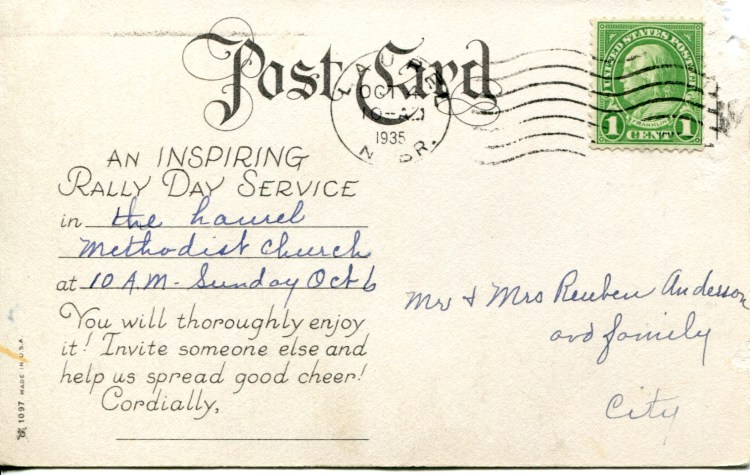 Post Card
LAUREL
OCT 4
10-AM
1935
NEBR.
UNITED STATES POSTAGE
FRANKLIN
1 CENT 1
AN INSPIRING
RALLY DAY SERVICE
in the Laurel
Methodist Church
at 10 A.M. - Sunday Oct 6
You will thoroughly enjoy
it! Invite someone else and
help us spread good cheer!
Cordially,
Mr & Mrs Reuben Anderson
and family
City
1097 MADE IN U.S.A.